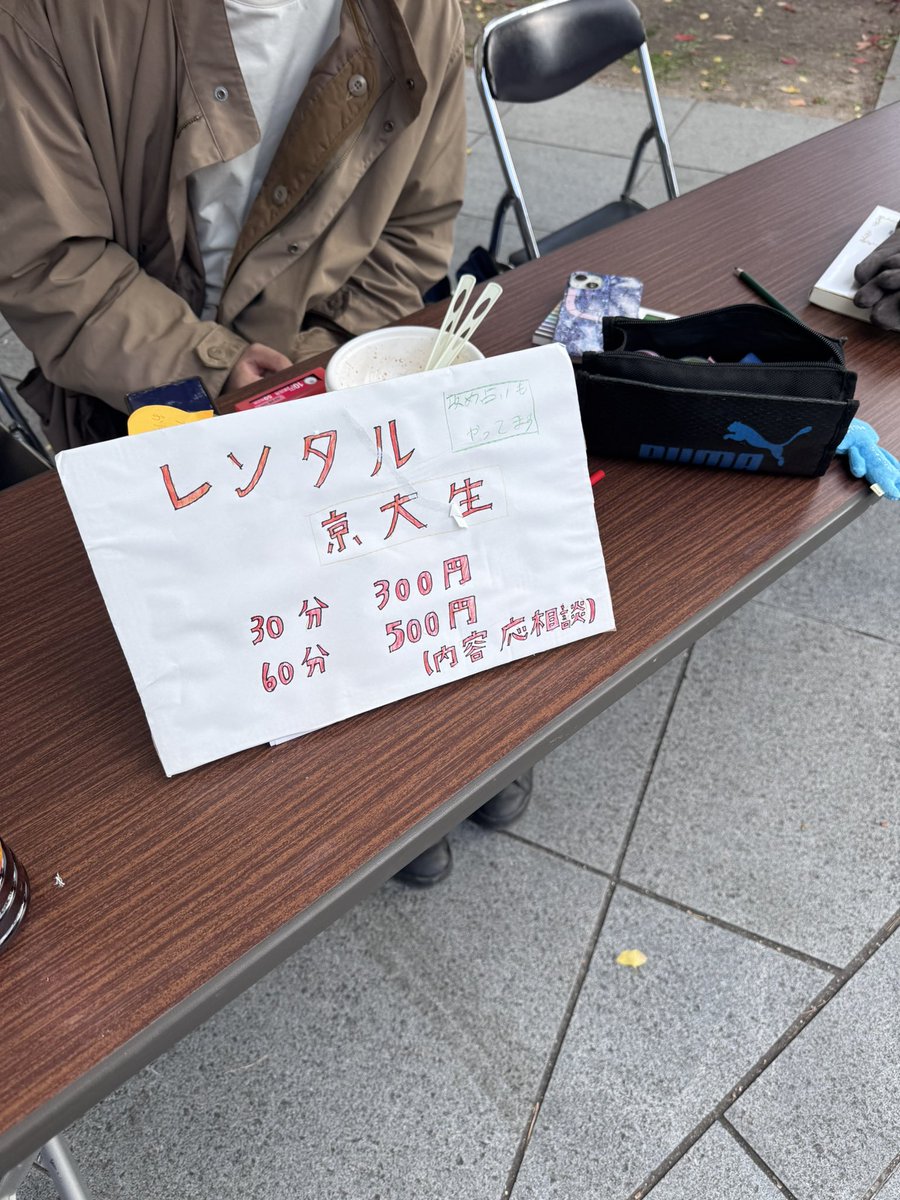 レンタル
京大生
30分 300円
60分 500円
(内容 応相談)
占いも
やってます
PUMA